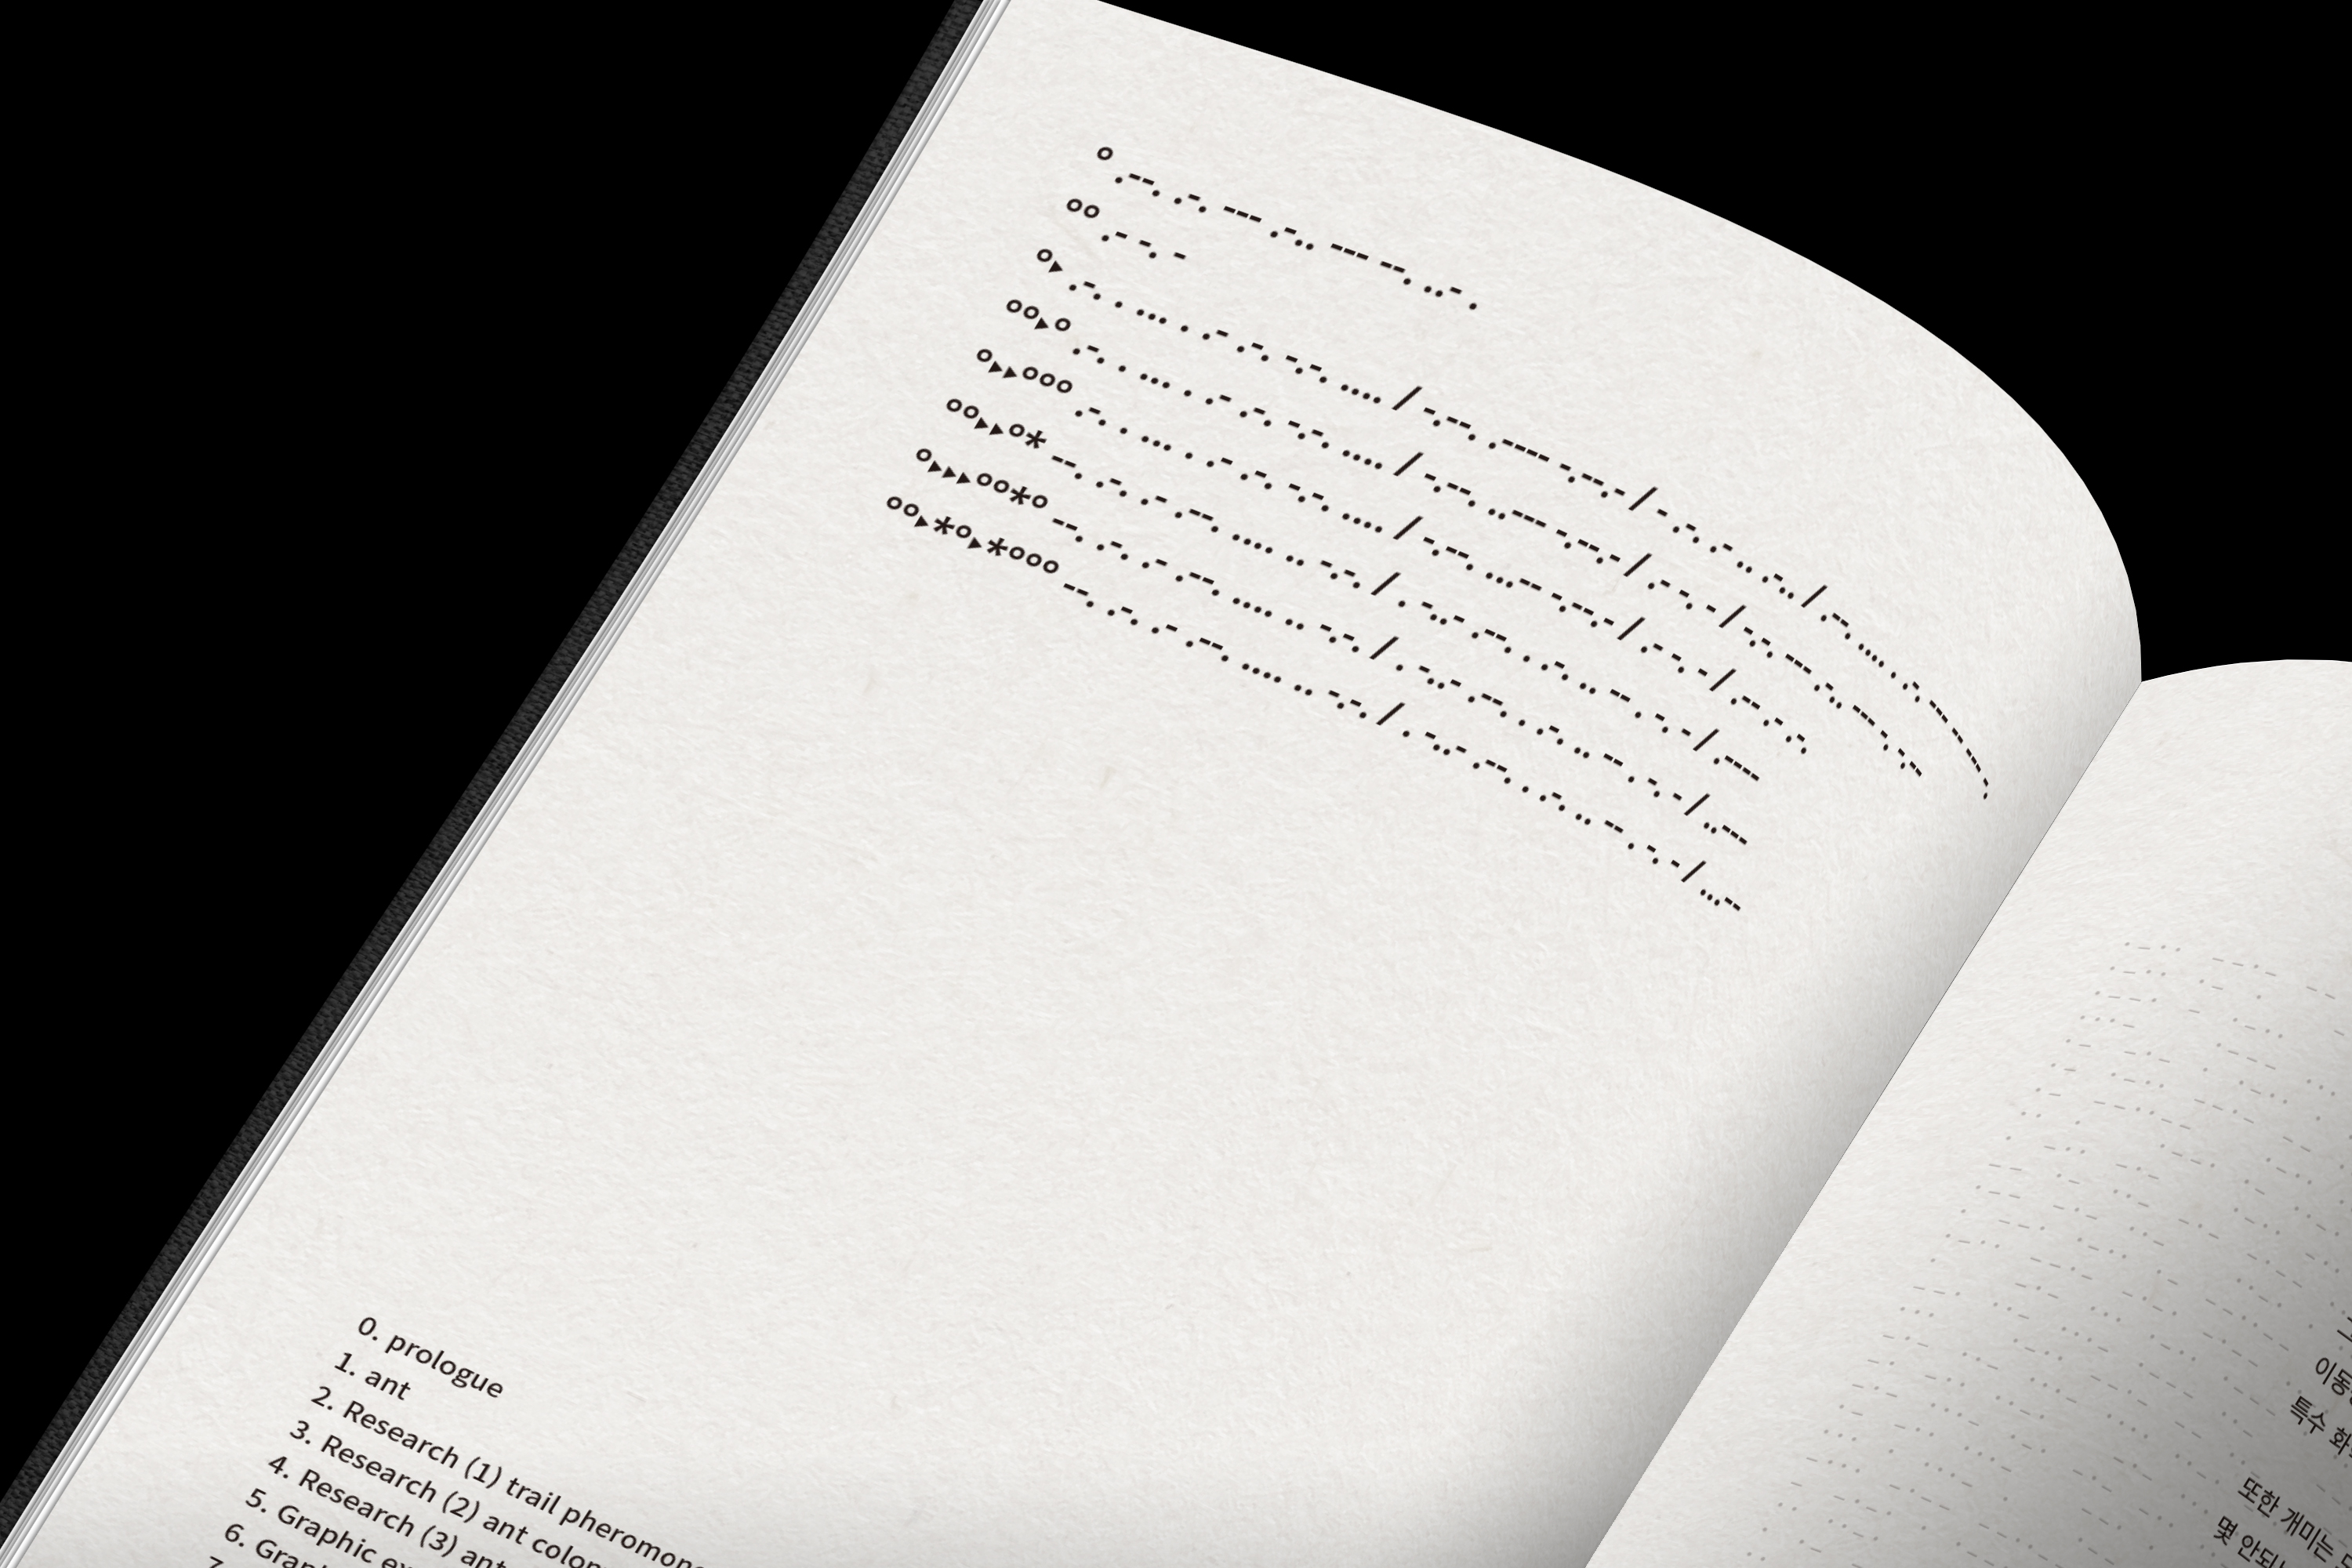 ° .--. .-. --- .-.. --- --. ..- .
°° .- -. -
°▸ .-. . ... . .- .-. -.-. .... / -.--. .---- -.--.- / - .-. .- .. .-.. / .--. .... . .-. --- -- --- -. .
°°▸° .-. . ... . .- .-. -.-. .... / -.--. ..--- -.--.- / .- -. - / -.-. --- .-.. --- -. -.--
°▸▸°°° .-. . ... . .- .-. -.-. .... / -.--. ...-- -.--.- / .- -. - / .-- .- .-.
°°▸▸°* --. .-. .- .--. .... .. -.-. / . -..- .--. . .-. .. -- . -. - / .----
°▸▸▸°°*° --. .-. .- .--. .... .. -.-. / . -..- .--. . .-. .. -- . -. - / ..---
°°▸*°▸*°°° --. .-. .- .--. .... .. -.-. / . -..- .--. . .-. .. -- . -. - / ...--
0. prologue
1. ant
2. Research (1) trail pheromon
3. Research (2) ant colon
4. Research (3) ant
5. Graphic ex
6. Grap
7.
이동
특수 화
또한 개미는
몇 안되